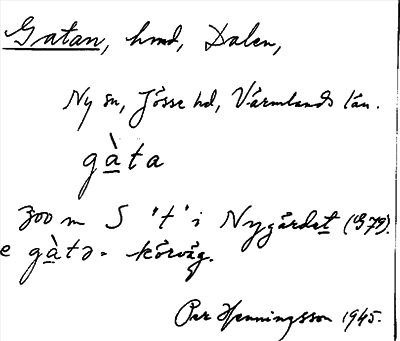 Gatan, hmd, Dalen,
Ny sn, Jösse hd, Värmlands län.
gàta
300 m S 't' i Nygårdet (G79).
e gàtə - körväg.
Per Henningsson 1945.